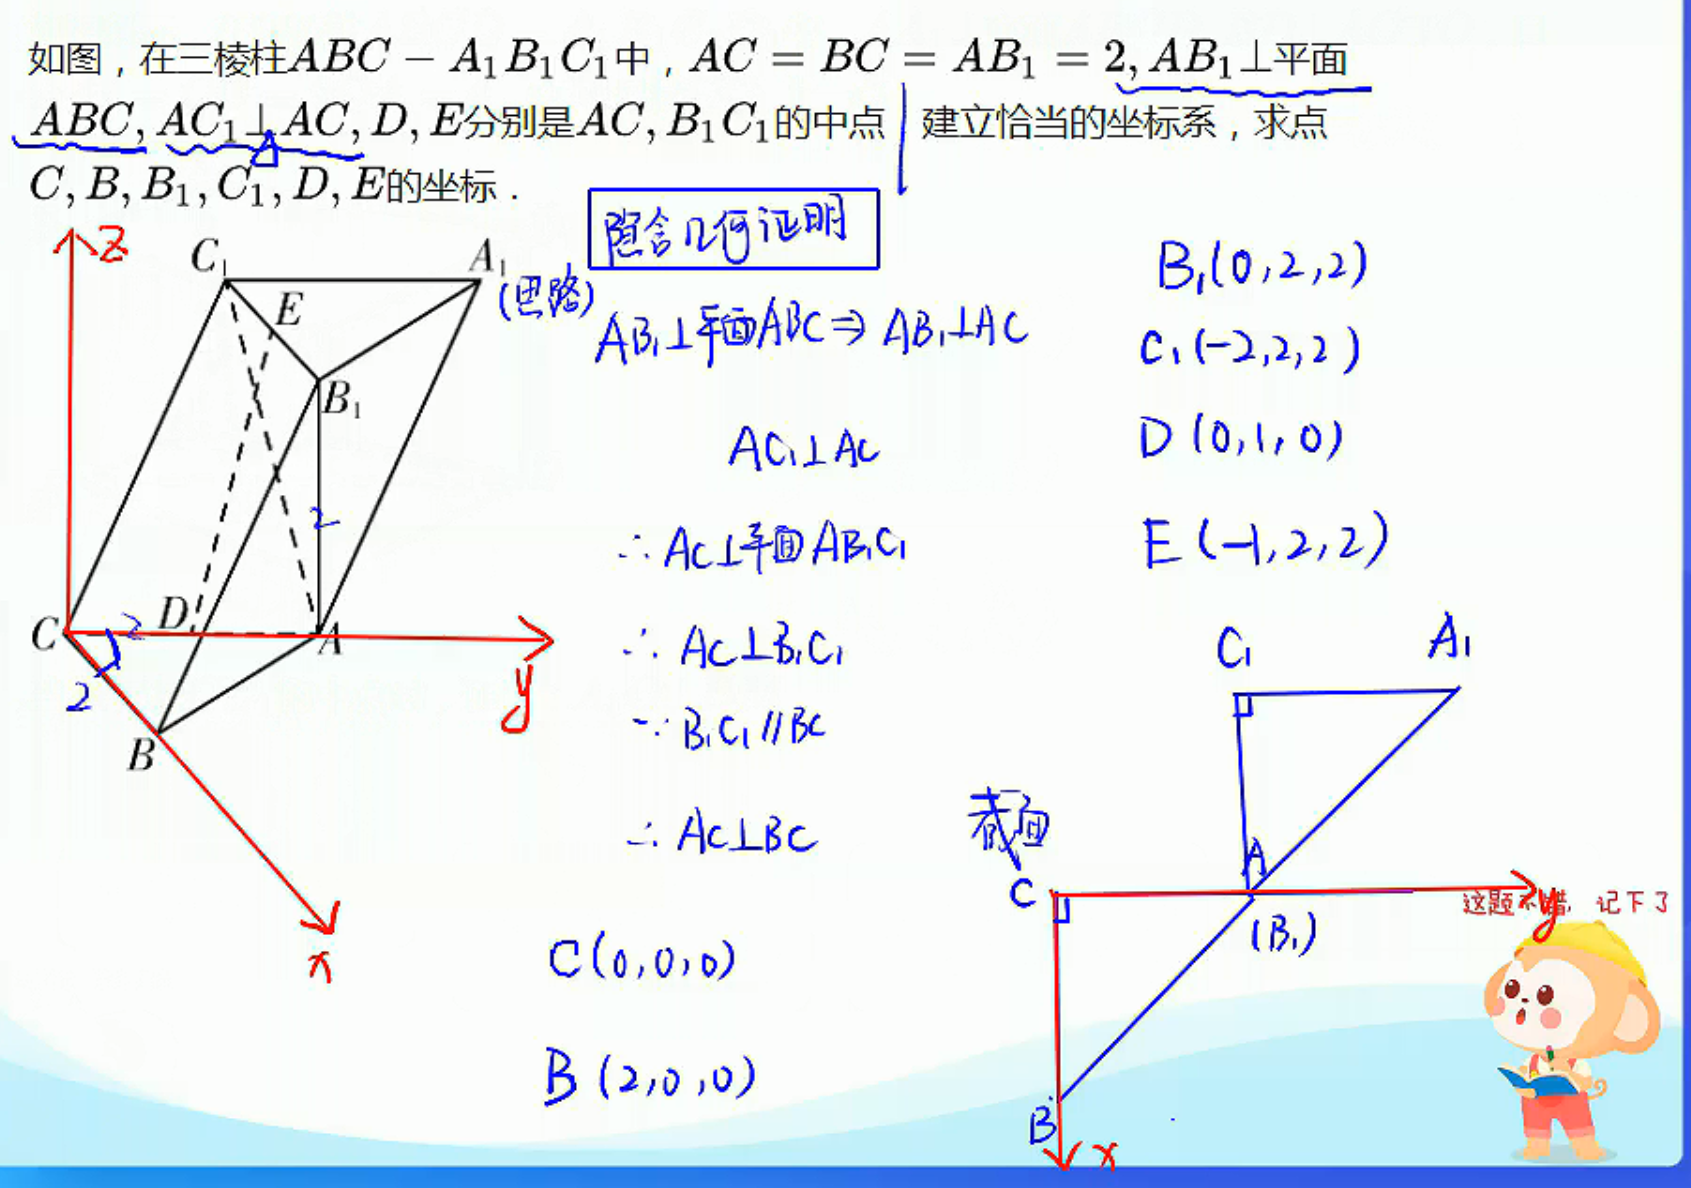 如图，在三棱柱ABC − A₁B₁C₁中，AC = BC = AB₁ = 2, AB₁⊥平面
ABC, AC₁⊥AC, D, E分别是AC, B₁C₁的中点 建立恰当的坐标系，求点
C, B, B₁, C₁, D, E的坐标．
隐含几何证明
(思路)
AB₁⊥平面ABC⇒AB₁⊥AC
AC₁⊥AC
∴AC⊥平面AB₁C₁
∴AC⊥B₁C₁
∵B₁C₁∥BC
∴AC⊥BC
C(0,0,0)
B(2,0,0)
B₁(0,2,2)
C₁(-2,2,2)
D(0,1,0)
E(-1,2,2)
z
C₁
A₁
E
B₁
2
C
D
2
A
y
2
B
x
C₁
A₁
截面
C
A
y
(B₁)
B
x
这题不错，记下了